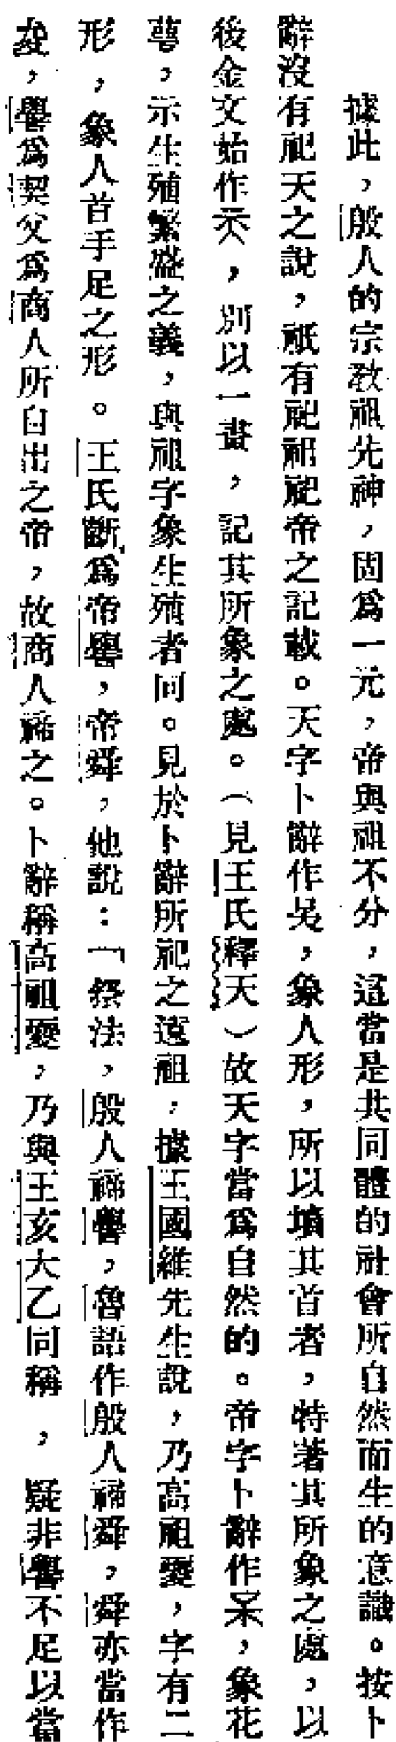 據此，殷人的宗敎祖先神，固爲一元，帝與祖不分，這當是共同體的社會所自然而生的意識。按卜
辭沒有祀天之說，祇有祀祖祀帝之記載。天字卜辭作，象人形，所以墳其首者，特著其所象之處，以
後金文始作，別以一畫，記其所象之處。（見王氏釋天）故天字當爲自然的。帝字卜辭作，象花
萼，示生殖繁盛之義，與祖字象生殖者同。見於卜辭所祀之遠祖，據王國維先生說，乃高祖夔，字有二
形，象人首手足之形。王氏斷爲帝嚳，帝舜，他說：「祭法，殷人禘嚳，魯語作殷人禘舜，舜亦當作
夋，嚳爲契父爲商人所自出之帝，故商人禘之。卜辭稱高祖夔，乃與王亥大乙同稱，疑非嚳不足以當